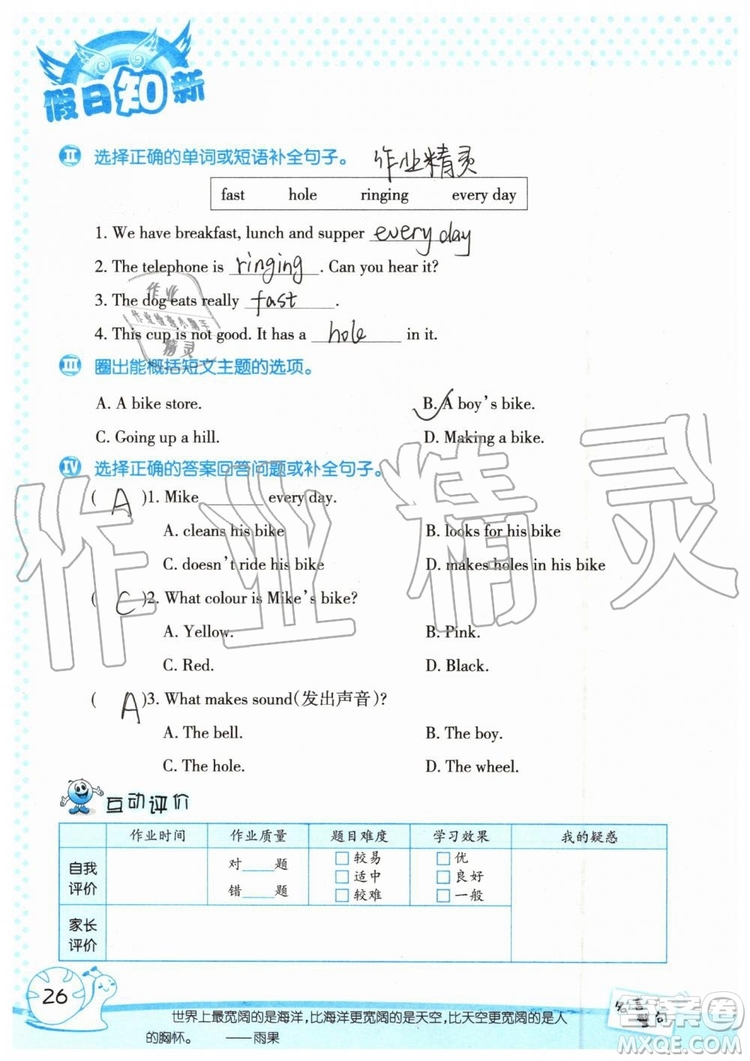 假日知新
II 选择正确的单词或短语补全句子。 作业精灵
fast hole ringing every day
1. We have breakfast, lunch and supper every day
2. The telephone is ringing. Can you hear it?
3. The dog eats really fast.
4. This cup is not good. It has a hole in it.
III 圈出能概括短文主题的选项。
A. A bike store. B. A boy's bike.
C. Going up a hill. D. Making a bike.
IV 选择正确的答案回答问题或补全句子。
( A )1. Mike ______ every day.
A. cleans his bike B. looks for his bike
C. doesn't ride his bike D. makes holes in his bike
( C )2. What colour is Mike's bike?
A. Yellow. B. Pink.
C. Red. D. Black.
( A )3. What makes sound(发出声音)?
A. The bell. B. The boy.
C. The hole. D. The wheel.
作业精灵
互动评价
作业时间 作业质量 题目难度 学习效果 我的疑惑
自我评价 对____题 □较易 □优
错____题 □适中 □良好
□较难 □一般
家长评价
26
世界上最宽阔的是海洋,比海洋更宽阔的是天空,比天空更宽阔的是人
的胸怀。 ——雨果
名言警句
答案圈
MXQE.COM